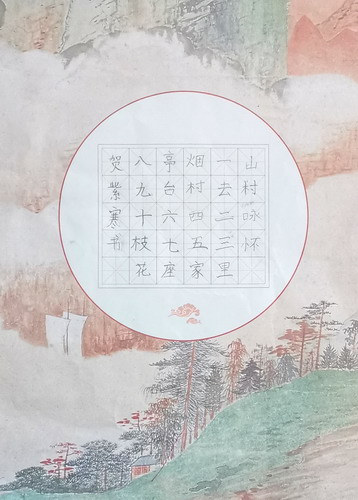 山村咏怀
一去二三里
烟村四五家
亭台六七座
八九十枝花
贺紫寒书